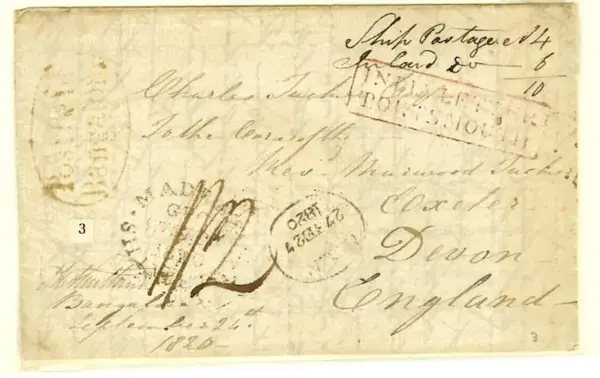 Ship Postage As 4
Inland do 6
10
INDIA LETTER
PORTSMOUTH
Charles Tucker Esqr
To the Care of the
Revd. Marwood Tucker
Exeter
Devon
England
Post Paid
Bangalore
SHP MADRAS
1/2
27 FB 27
1820
3
Bangalore
September 24th
1820
3